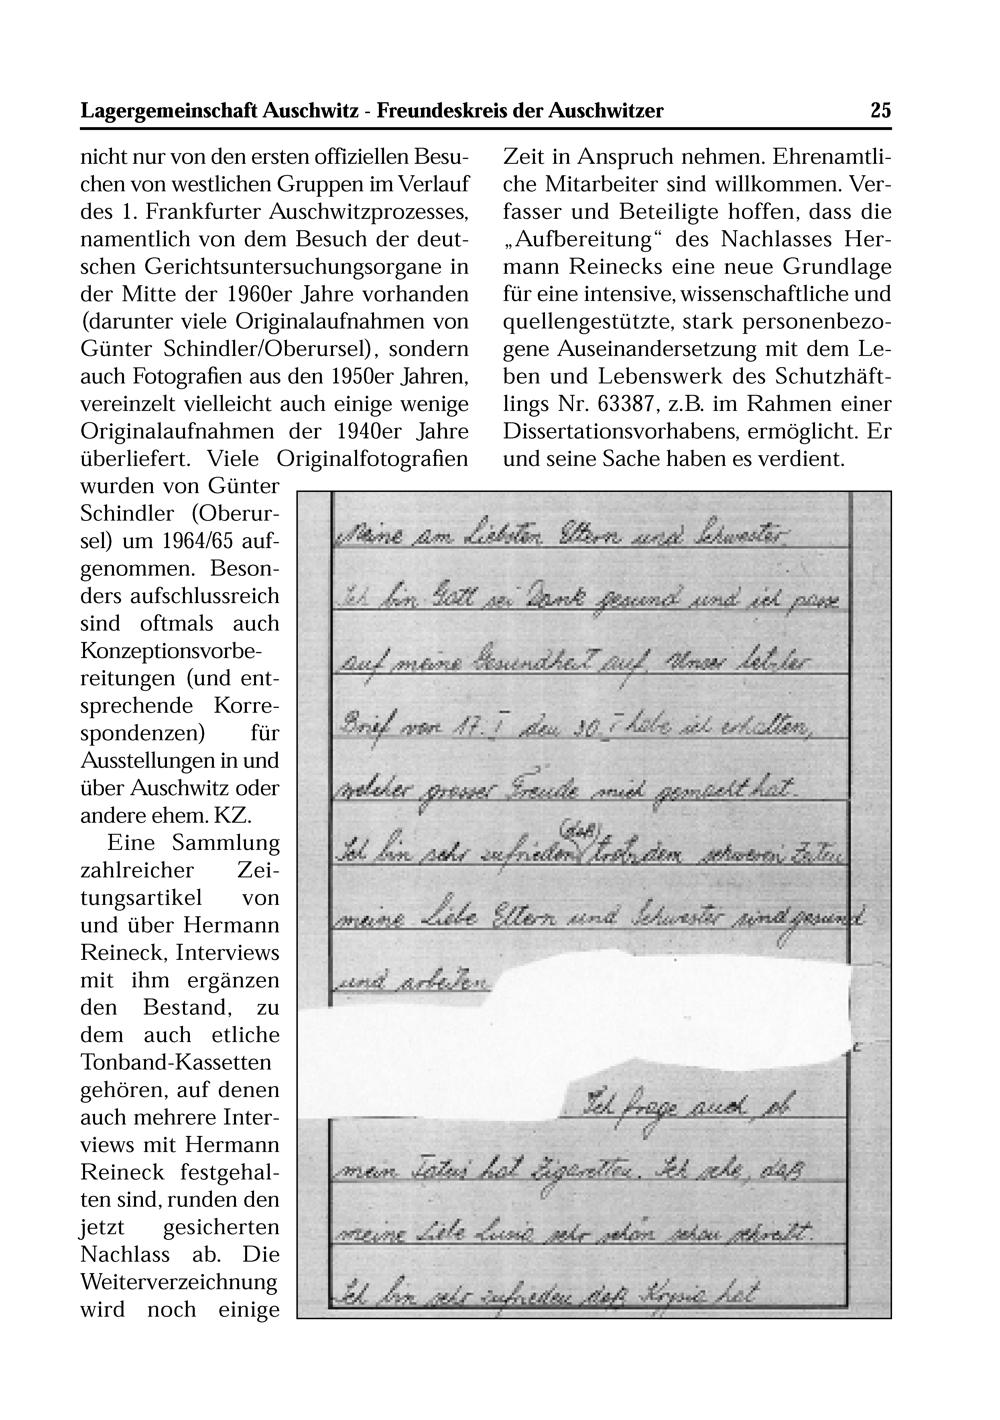 Lagergemeinschaft Auschwitz - Freundeskreis der Auschwitzer 25
nicht nur von den ersten offiziellen Besu-
chen von westlichen Gruppen im Verlauf
des 1. Frankfurter Auschwitzprozesses,
namentlich von dem Besuch der deut-
schen Gerichtsuntersuchungsorgane in
der Mitte der 1960er Jahre vorhanden
(darunter viele Originalaufnahmen von
Günter Schindler/Oberursel), sondern
auch Fotografien aus den 1950er Jahren,
vereinzelt vielleicht auch einige wenige
Originalaufnahmen der 1940er Jahre
überliefert. Viele Originalfotografien
wurden von Günter
Schindler (Oberur-
sel) um 1964/65 auf-
genommen. Beson-
ders aufschlussreich
sind oftmals auch
Konzeptionsvorbe-
reitungen (und ent-
sprechende Korre-
spondenzen) für
Ausstellungen in und
über Auschwitz oder
andere ehem. KZ.
Eine Sammlung
zahlreicher Zei-
tungsartikel von
und über Hermann
Reineck, Interviews
mit ihm ergänzen
den Bestand, zu
dem auch etliche
Tonband-Kassetten
gehören, auf denen
auch mehrere Inter-
views mit Hermann
Reineck festgehal-
ten sind, runden den
jetzt gesicherten
Nachlass ab. Die
Weiterverzeichnung
wird noch einige
Zeit in Anspruch nehmen. Ehrenamtli-
che Mitarbeiter sind willkommen. Ver-
fasser und Beteiligte hoffen, dass die
„Aufbereitung“ des Nachlasses Her-
mann Reinecks eine neue Grundlage
für eine intensive, wissenschaftliche und
quellengestützte, stark personenbezo-
gene Auseinandersetzung mit dem Le-
ben und Lebenswerk des Schutzhäft-
lings Nr. 63387, z.B. im Rahmen einer
Dissertationsvorhabens, ermöglicht. Er
und seine Sache haben es verdient.
Meine am Liebsten Eltern und Schwester.
Ich bin Gott sei Dank gesund und ich passe
auf meine Gesundheit auf. Unser letzter
Brief von 17. I den 30. I habe ich erhalten,
welcher grosser Freude mich gemacht hat.
Ich bin sehr zufrieden (daß) trotz dem schweren Zeiten
meine Liebe Eltern und Schwester sind gesund
und arbeiten
Ich frage auch, ob
mein Tatuś hat Zigaretten. Ich sehe, daß
meine Liebe Lusia sehr schön schon schreibt.
Ich bin sehr zufrieden daß Krysia hat